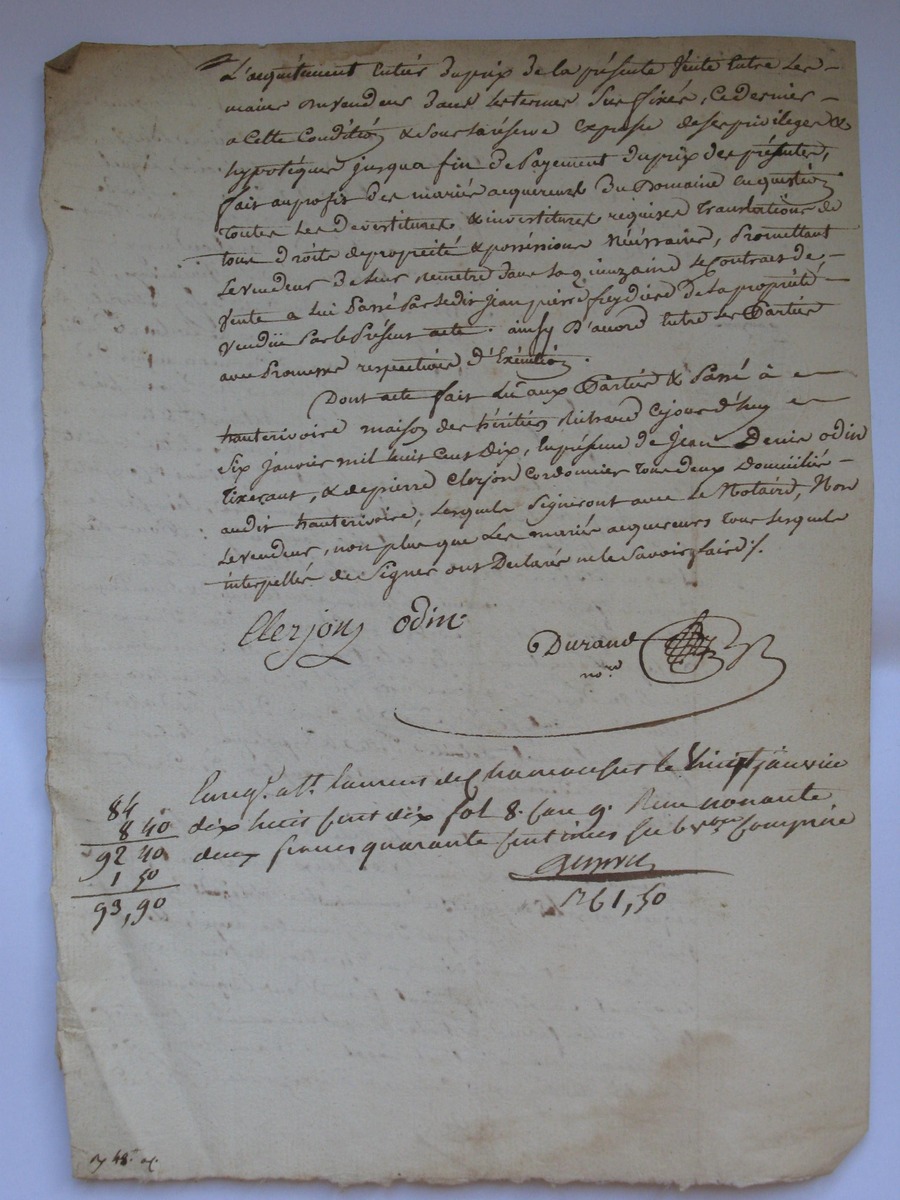 L'acquittement Entier Du prix De la présente Vente Entre les
mains Du vendeur Dans les termes Sus fixés, Ce dernier
a Cette Condition & sous la réserve Expresse de ses privileges &
hypotéques jusqu'a fin De Payement Du prix des présentes,
fait au profit des mariés acquereurs Du Domaine En question
toutes les devestitures & investitures requises translations de
tous droits de propriété & posséssions Nécéssaires, Promettant
Le vendeur De leur remettre dans la quinzaine le Contrat de
Vente a lui Passé Par ledit Jean pierre freydière De la propriété
Vendüe Par le Présent acte. ainsy D'accord Entre les Parties
avec Promesses respectives d'Exécution.
Dont acte fait Lu aux Parties & Passé à
hauterivoire maison des héritiers Cejourd'huy
Six janvier mil huit Cent Dix, En présence de Jean Denis Odin
Tixerant, & de pierre Clerjon Cordonnier tous deux Domiciliés
audit hauterivoire, lesquels Signeront avec le Notaire, Non
Le vendeur, non plus que Les mariés acquereurs tous lesquels
interpellés de Signer ont Déclarés ne le Savoir faire ./.
Clerjon Odin
Durand
no.re
Enreg.
à St. laurent de Chamousset le Vingt janvier
dix huit Cent dix fol 8. Case 9. Recu nonante
deux francs quarante Centimes Subvon Comprise
84
8 40
92 40
1 50
93,90
61,50
48